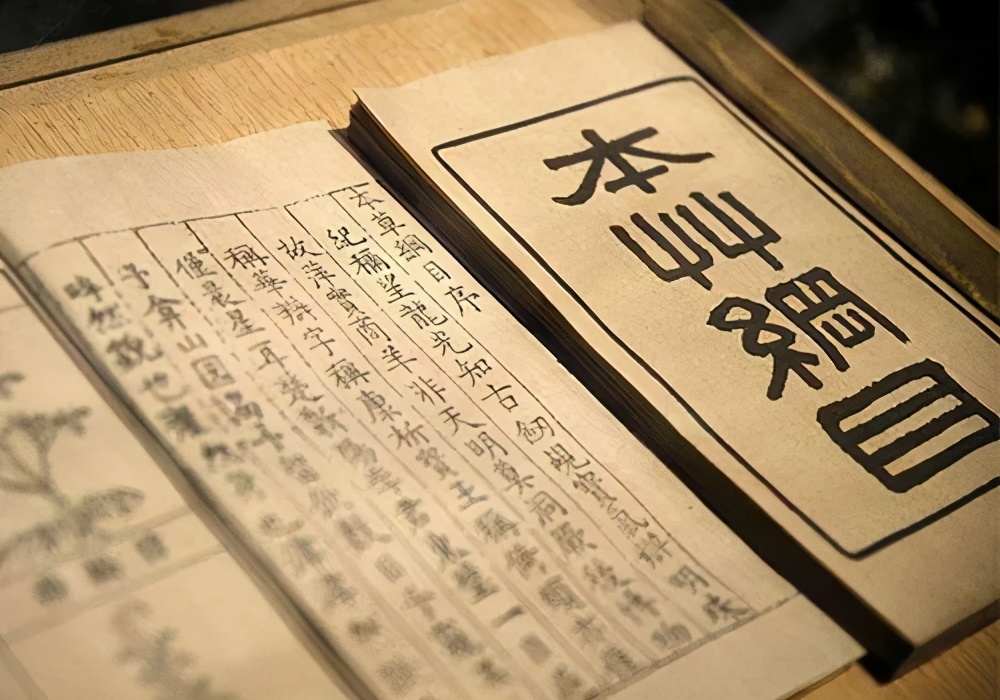 本艸綱目
本草綱目序
紀稱望龍光知古劍覘寶氣辨明珠
故萍實商羊非天明莫洞厥後博物
稱華辯字稱康析寶玉稱倚頓亦僅
僅晨星耳楚蘄陽李君東璧一
予弇山園謁予留飲數日予窺其
睟然貌也癯然